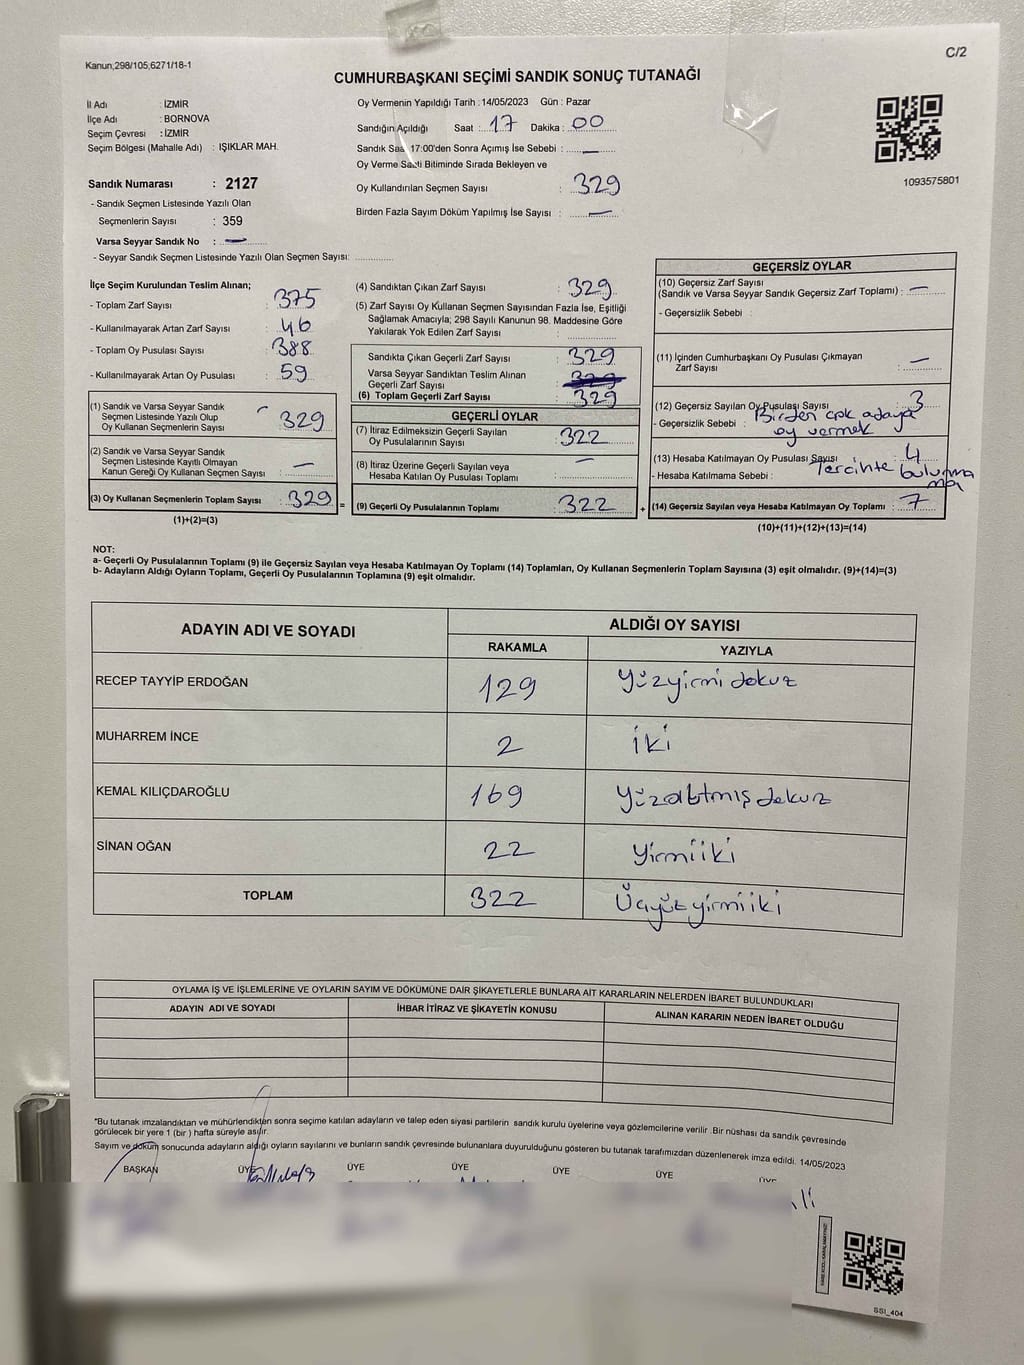 Kanun;298/105;6271/18-1
C/2
CUMHURBAŞKANI SEÇİMİ SANDIK SONUÇ TUTANAĞI
İl Adı : İZMİR
İlçe Adı : BORNOVA
Seçim Çevresi : İZMİR
Seçim Bölgesi (Mahalle Adı) : IŞIKLAR MAH.
Sandık Numarası : 2127
- Sandık Seçmen Listesinde Yazılı Olan
Seçmenlerin Sayısı : 359
Varsa Seyyar Sandık No : —
- Seyyar Sandık Seçmen Listesinde Yazılı Olan Seçmen Sayısı:
Oy Vermenin Yapıldığı Tarih : 14/05/2023 Gün : Pazar
Sandığın Açıldığı Saat : 17 Dakika : 00
Sandık Saat 17:00'den Sonra Açımış İse Sebebi : —
Oy Verme Saati Bitiminde Sırada Bekleyen ve
Oy Kullandırılan Seçmen Sayısı : 329
Birden Fazla Sayım Döküm Yapılmış İse Sayısı : —
1093575801
İlçe Seçim Kurulundan Teslim Alınan;
- Toplam Zarf Sayısı : 375
- Kullanılmayarak Artan Zarf Sayısı : 46
- Toplam Oy Pusulası Sayısı : 388
- Kullanılmayarak Artan Oy Pusulası : 59
(1) Sandık ve Varsa Seyyar Sandık
Seçmen Listesinde Yazılı Olup
Oy Kullanan Seçmenlerin Sayısı : 329
(2) Sandık ve Varsa Seyyar Sandık
Seçmen Listesinde Kayıtlı Olmayan
Kanun Gereği Oy Kullanan Seçmen Sayısı : —
(3) Oy Kullanan Seçmenlerin Toplam Sayısı : 329 =
(1)+(2)=(3)
(4) Sandıktan Çıkan Zarf Sayısı : 329
(5) Zarf Sayısı Oy Kullanan Seçmen Sayısından Fazla İse, Eşitliği
Sağlamak Amacıyla; 298 Sayılı Kanunun 98. Maddesine Göre
Yakılarak Yok Edilen Zarf Sayısı :
Sandıkta Çıkan Geçerli Zarf Sayısı : 329
Varsa Seyyar Sandıktan Teslim Alınan
Geçerli Zarf Sayısı : 329
(6) Toplam Geçerli Zarf Sayısı : 329
GEÇERLİ OYLAR
(7) İtiraz Edilmeksizin Geçerli Sayılan
Oy Pusulalarının Sayısı : 322
(8) İtiraz Üzerine Geçerli Sayılan veya
Hesaba Katılan Oy Pusulası Toplamı : —
(9) Geçerli Oy Pusulalarının Toplamı : 322 +
GEÇERSİZ OYLAR
(10) Geçersiz Zarf Sayısı
(Sandık ve Varsa Seyyar Sandık Geçersiz Zarf Toplamı) : —
- Geçersizlik Sebebi :
(11) İçinden Cumhurbaşkanı Oy Pusulası Çıkmayan
Zarf Sayısı : —
(12) Geçersiz Sayılan Oy Pusulası Sayısı : 3
- Geçersizlik Sebebi : Birden çok adaya
oy vermek
(13) Hesaba Katılmayan Oy Pusulası Sayısı : 4
- Hesaba Katılmama Sebebi : Tercihte bulunma
ma
(14) Geçersiz Sayılan veya Hesaba Katılmayan Oy Toplamı : 7
(10)+(11)+(12)+(13)=(14)
NOT:
a- Geçerli Oy Pusulalarının Toplamı (9) ile Geçersiz Sayılan veya Hesaba Katılmayan Oy Toplamı (14) Toplamları, Oy Kullanan Seçmenlerin Toplam Sayısına (3) eşit olmalıdır. (9)+(14)=(3)
b- Adayların Aldığı Oyların Toplamı, Geçerli Oy Pusulalarının Toplamına (9) eşit olmalıdır.
ADAYIN ADI VE SOYADI ALDIĞI OY SAYISI
RAKAMLA YAZIYLA
RECEP TAYYİP ERDOĞAN 129 Yüzyirmi dokuz
MUHARREM İNCE 2 iki
KEMAL KILIÇDAROĞLU 169 Yüzaltmış dokuz
SİNAN OĞAN 22 Yirmiiki
TOPLAM 322 Üçyüzyirmiiki
OYLAMA İŞ VE İŞLEMLERİNE VE OYLARIN SAYIM VE DÖKÜMÜNE DAİR ŞİKAYETLERLE BUNLARA AİT KARARLARIN NELERDEN İBARET BULUNDUKLARI
ADAYIN ADI VE SOYADI İHBAR İTİRAZ VE ŞİKAYETİN KONUSU ALINAN KARARIN NEDEN İBARET OLDUĞU
*Bu tutanak imzalandıktan ve mühürlendikten sonra seçime katılan adayların ve talep eden siyasi partilerin sandık kurulu üyelerine veya gözlemcilerine verilir .Bir nüshası da sandık çevresinde
görülecek bir yere 1 (bir ) hafta süreyle asılır.
Sayım ve döküm sonucunda adayların aldığı oyların sayılarını ve bunların sandık çevresinde bulunanlara duyurulduğunu gösteren bu tutanak tarafımızdan düzenlenerek imza edildi. 14/05/2023
BAŞKAN ÜYE ÜYE ÜYE ÜYE ÜYE ÜYE
SSI_404